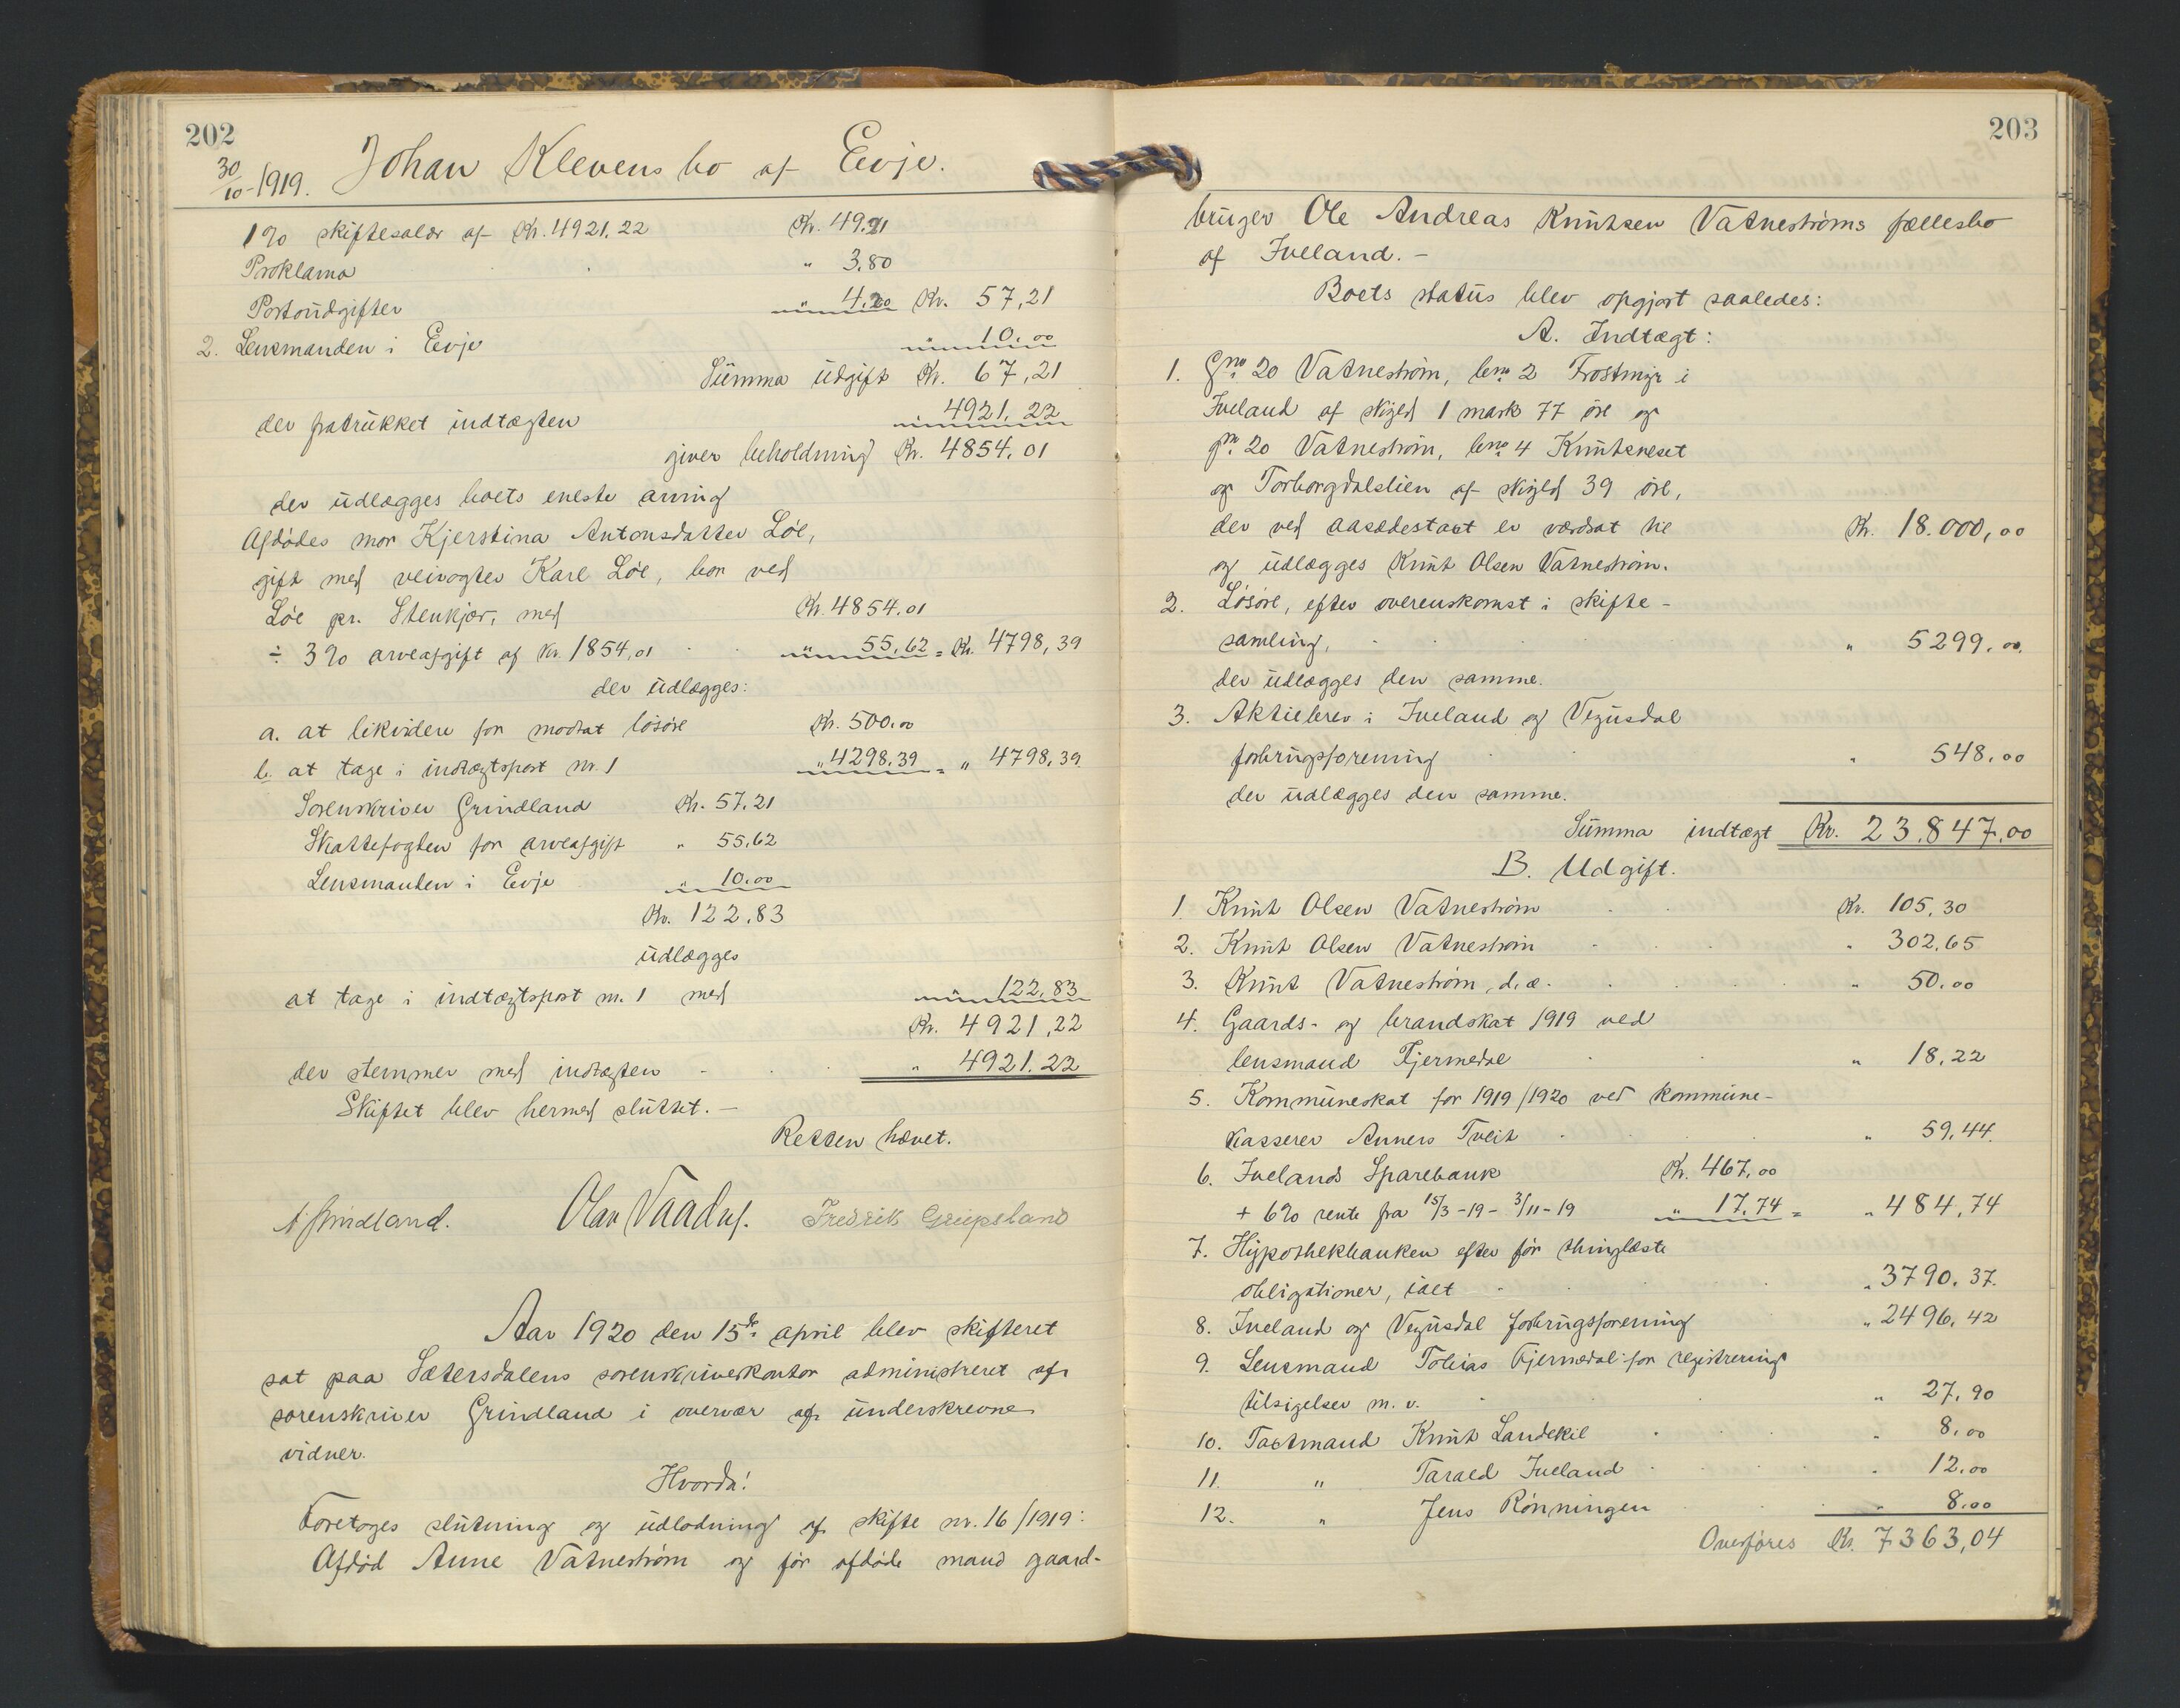 202
30/10-1919. Johan Klevens bo af Evje.
1% skiftesalær af Kr. 4921.22 Kr. 49.21
Proklama " 3.80
Portoudgifter " 4.20 Kr. 57,21
2. Lensmanden i Evje " 10.00
Summa udgift Kr. 67,21
der fratrukket indtægten " 4921.22
giver beholdning Kr. 4854.01
der udlægges boets eneste arving
Afdødes mor Kjerstina Antonsdatter Løe,
gift med veivogter Karl Løe, bor ved
Løe pr. Stenkjær, med Kr. 4854.01
÷ 3% arveafgift af kr. 1854,01 " 55,62 = Kr. 4798,39
der udlægges:
a. at likvidere for modtat løsøre Kr. 500.00
b. at tage i indtægtspost nr. 1 " 4298.39 = " 4798,39
Sorenskriver Grindland Kr. 57.21
Skattefogten for arveafgift " 55.62
Lensmanden i Evje " 10.00
Kr. 122.83
udlægges
at tage i indtægtspost nr. 1 med " 122.83
Kr. 4921,22
der stemmer med indtægten " 4921.22
Skiftet blev hermed sluttet. –
Retten hævet.
Grindland. Olav Fredrik Greipsland
Aar 1920 den 15de april blev skifteret
sat paa Sætersdalens sorenskriverkontor administreret af
sorenskriver Grindland i overvær af underskrevne
vidner.
Hvorda!
Foretoges slutning og udlodning af skifte nr. 16/1919:
Afdød Anne Vatnestrøm og før afdøde mand gaard-
203
bruger Ole Andreas Knutsen Vatnestrøms fællesbo
af Iveland. –
Boets status blev opgjort saaledes:
A. Indtægt:
1. Gno. 20 Vatnestrøm, bno. 2 Frostmyr i
Iveland af skyld 1 mark 77 øre og
gno. 20 Vatnestrøm, bno. 4 Knutsneset
og Torborgdalslien af skyld 39 øre,
der ved aasædestaxt er værdsat til Kr. 18.000,00
og udlægges Knut Olsen Vatnestrøm.
2. Løsøre, efter overenskomst i skifte-
samling, " 5299.00
der udlægges den samme.
3. Aktiebrev i Iveland og Vegusdal
forbrugsforening " 548.00
der udlægges den samme.
Summa indtægt Kr. 23.847.00
B. Udgift.
1 Knut Olsen Vatnestrøm Kr. 105,30
2. Knut Olsen Vatnestrøm " 302,65
3. Knut Vatnestrøm, d.æ. " 50.00
4. Gaards- og brandskat 1919 ved
lensmand Fjermedal " 18,22
5. Kommuneskat for 1919/1920 ved kommune-
kasserer Anners Tveit " 59,44
6. Ivelands Sparebank Kr. 467,00
+ 6% rente fra 15/3-19 - 3/11-19 " 17.74 = " 484,74
7. Hypothekbanken efter før thinglæste
obligationer, ialt " 3790.37
8. Iveland og Vegusdal forbrugsforening " 2496,42
9. Lensmand Tobias Fjermedal for registrering
tilsigelser m. v. " 27,90
10. Taxtmand Knut Landskil " 8,00
11. " Tarald Iveland " 12.00
12. " Jens Rønningen " 8.00
Overføres Kr. 7363,04